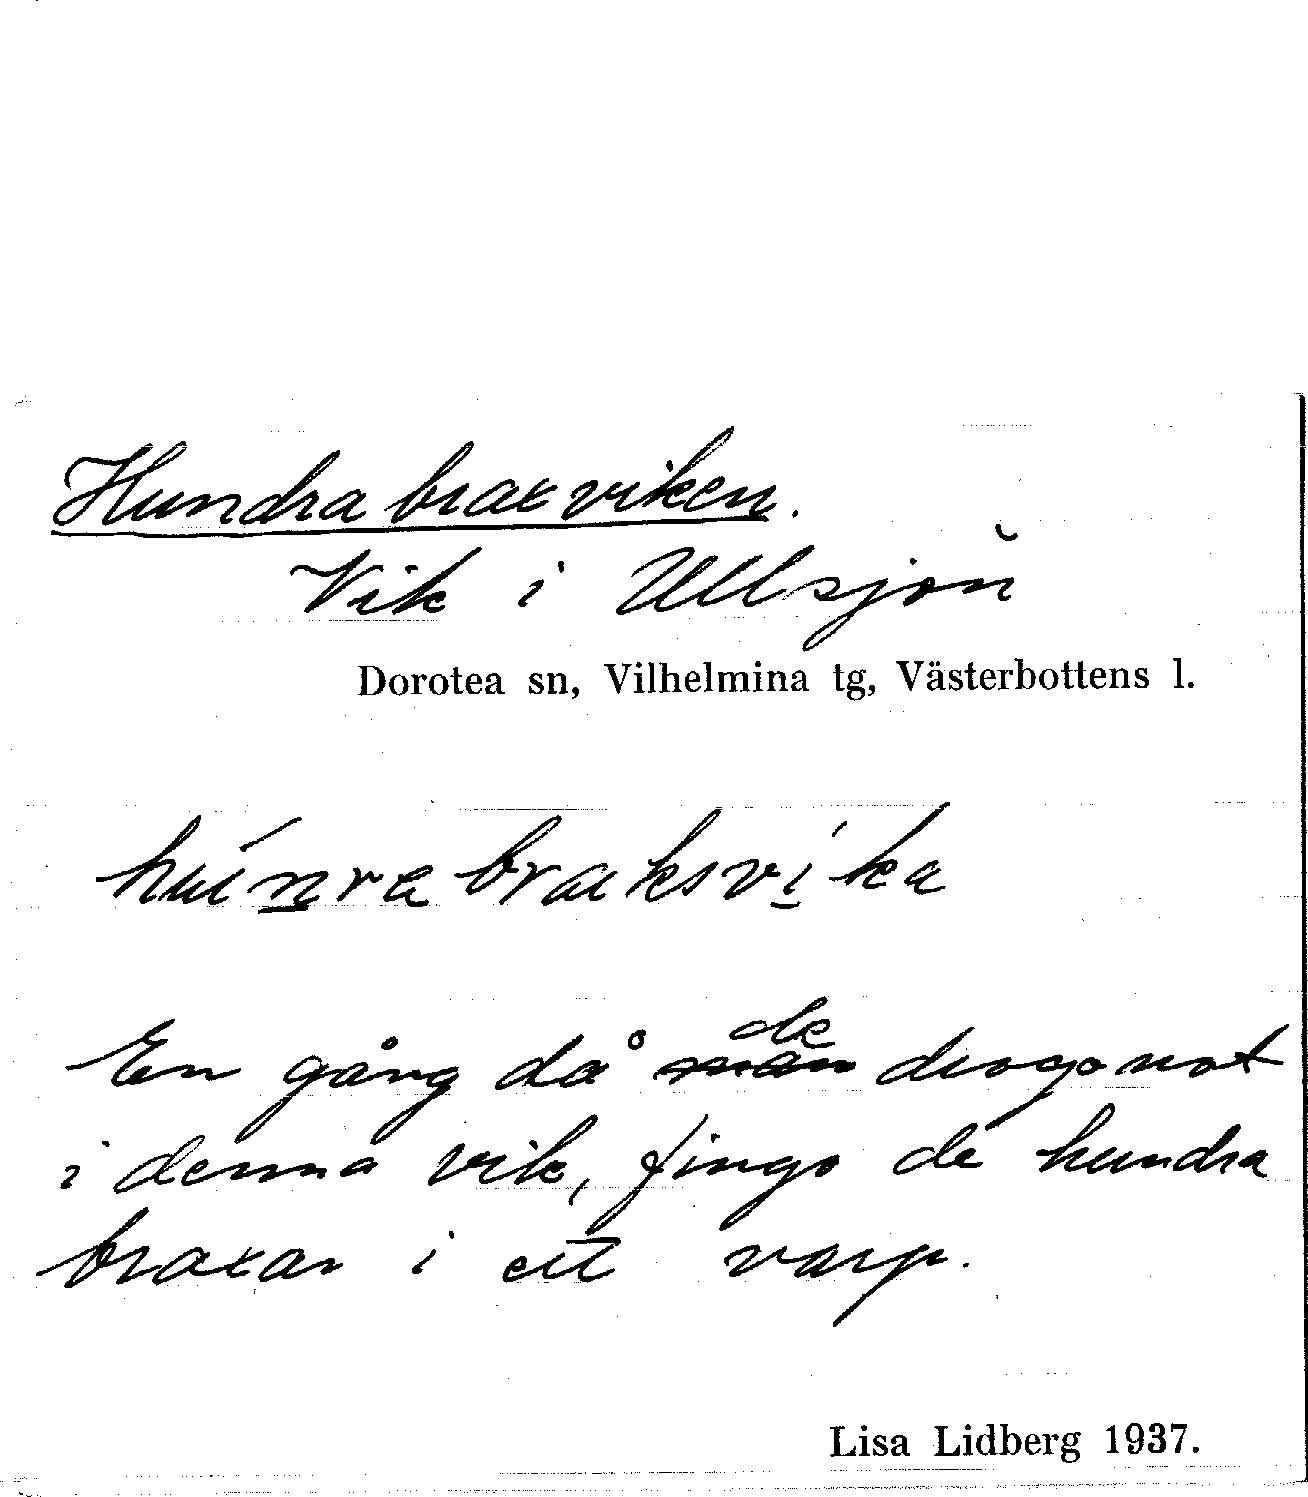 Hundrabraxviken.
Vik i Ullsjön
Dorotea sn, Vilhelmina tg, Västerbottens l.
húnrabraksvíka
En gång då de drogo not
i denna vik, fingo de hundra
braxar i ett varp.
Lisa Lidberg 1937.